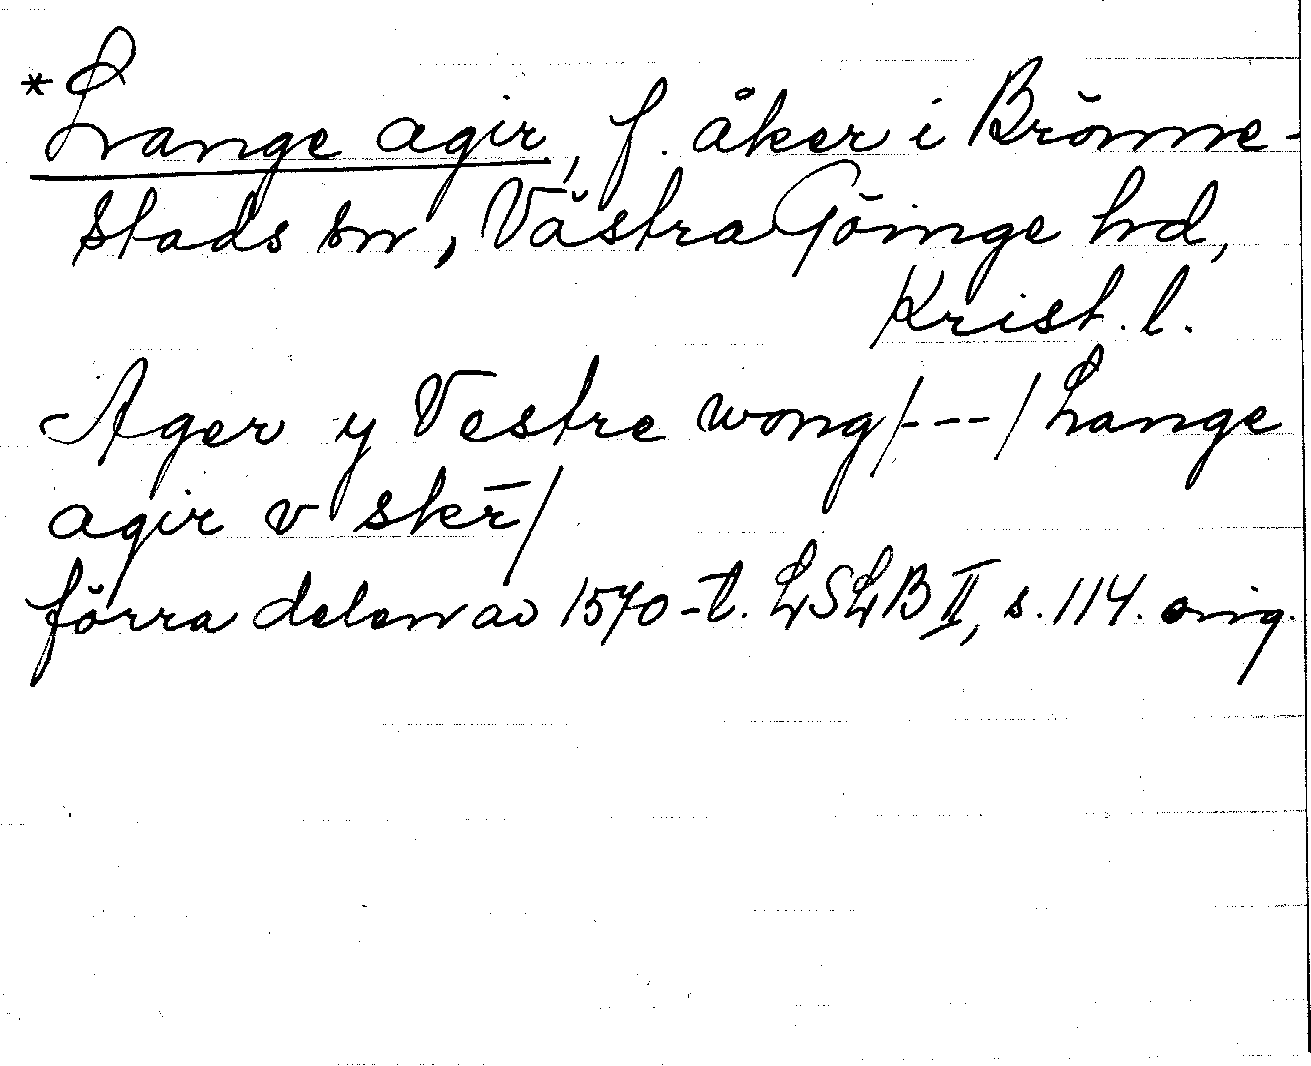 *Lange agir, f. åker i Brönne-
stads sn, Västra Göinge hd,
Krist. l.
Ager y Vestre wong/---/Lange
agir v sker̄/
förra delen av 1570-t. LSLB II, s. 114. orig.